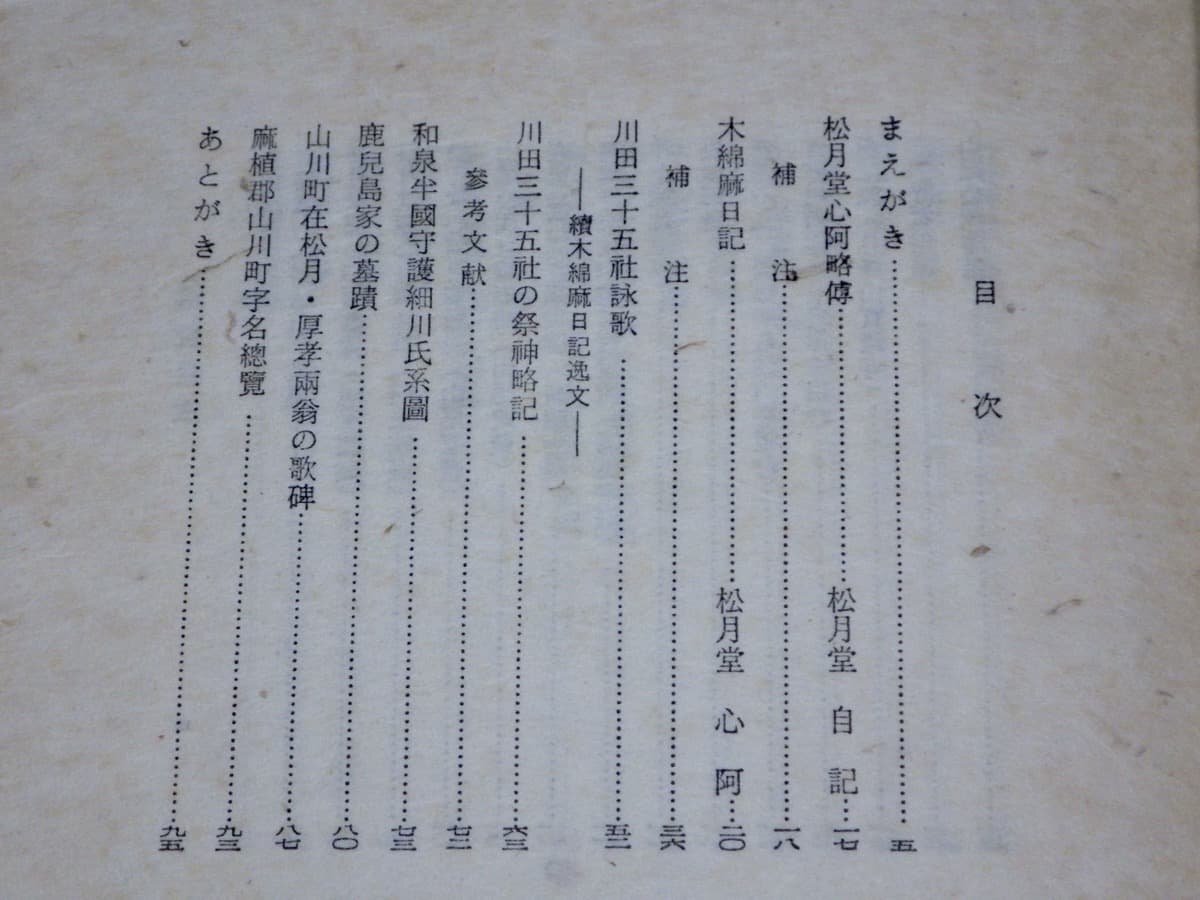 目次
まえがき……五
松月堂心阿略傳……松月堂自記…一七
補注……一八
木綿麻日記……松月堂心阿…二〇
補注……三六
川田三十五社詠歌……五二
―續木綿麻日記逸文―
川田三十五社の祭神略記……六三
參考文献……七二
和泉半國守護細川氏系圖……七三
鹿兒島家の墓蹟……八〇
山川町在松月・厚孝兩翁の歌碑……八七
麻植郡山川町字名總覽……九三
あとがき……九五